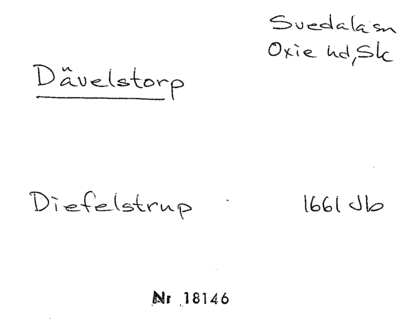 Svedala sn
Oxie hd, Sk
Dävelstorp
Diefelstrup 1661 Jb
Nr 18146